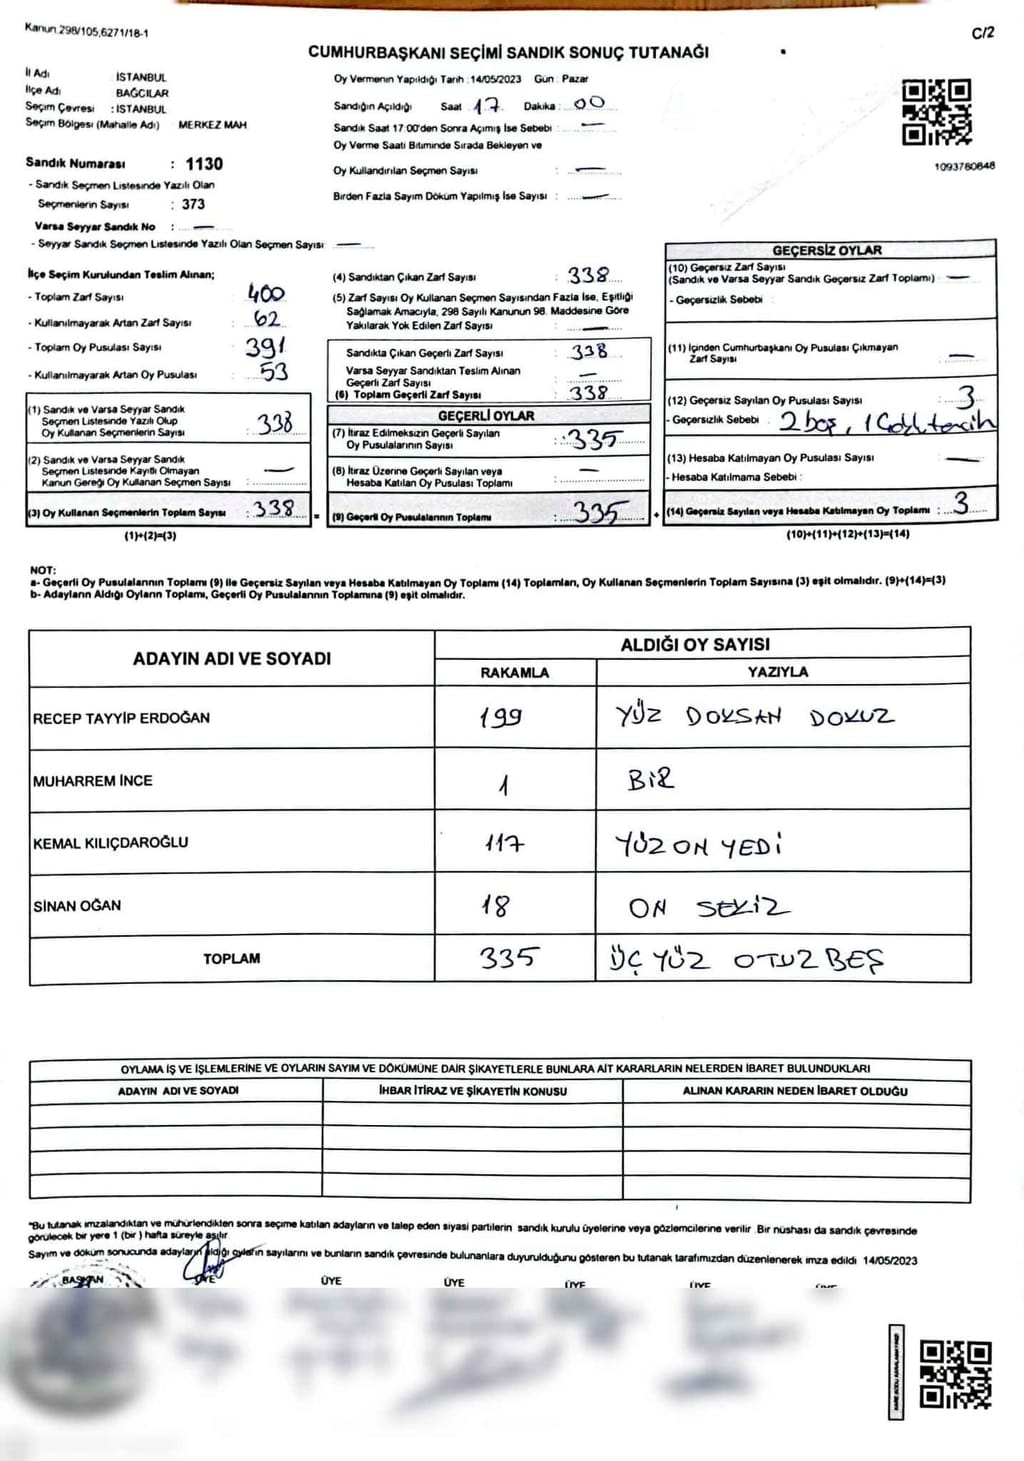 Kanun.298/105,6271/18-1
C/2
CUMHURBAŞKANI SEÇİMİ SANDIK SONUÇ TUTANAĞI
İl Adı İSTANBUL
İlçe Adı BAĞCILAR
Seçim Çevresi : İSTANBUL
Seçim Bölgesi (Mahalle Adı) MERKEZ MAH
Sandık Numarası : 1130
- Sandık Seçmen Listesinde Yazılı Olan
Seçmenlerin Sayısı : 373
Varsa Seyyar Sandık No : —
- Seyyar Sandık Seçmen Listesinde Yazılı Olan Seçmen Sayısı —
Oy Vermenin Yapıldığı Tarih : 14/05/2023 Gün : Pazar
Sandığın Açıldığı Saat 17 Dakika : 00
Sandık Saat 17:00'den Sonra Açımış İse Sebebi : —
Oy Verme Saati Bitiminde Sırada Bekleyen ve
Oy Kullandırılan Seçmen Sayısı : —
Birden Fazla Sayım Döküm Yapılmış İse Sayısı : —
1093760848
İlçe Seçim Kurulundan Teslim Alınan;
- Toplam Zarf Sayısı : 400
- Kullanılmayarak Artan Zarf Sayısı : 62
- Toplam Oy Pusulası Sayısı : 391
- Kullanılmayarak Artan Oy Pusulası : 53
(1) Sandık ve Varsa Seyyar Sandık
Seçmen Listesinde Yazılı Olup
Oy Kullanan Seçmenlerin Sayısı : 338
(2) Sandık ve Varsa Seyyar Sandık
Seçmen Listesinde Kayıtlı Olmayan
Kanun Gereği Oy Kullanan Seçmen Sayısı : —
(3) Oy Kullanan Seçmenlerin Toplam Sayısı : 338
(1)+(2)=(3)
(4) Sandıktan Çıkan Zarf Sayısı : 338
(5) Zarf Sayısı Oy Kullanan Seçmen Sayısından Fazla İse, Eşitliği
Sağlamak Amacıyla, 298 Sayılı Kanunun 98. Maddesine Göre
Yakılarak Yok Edilen Zarf Sayısı : —
Sandıkta Çıkan Geçerli Zarf Sayısı : 338
Varsa Seyyar Sandıktan Teslim Alınan
Geçerli Zarf Sayısı : —
(6) Toplam Geçerli Zarf Sayısı : 338
GEÇERLİ OYLAR
(7) İtiraz Edilmeksizin Geçerli Sayılan
Oy Pusulalarının Sayısı : 335
(8) İtiraz Üzerine Geçerli Sayılan veya
Hesaba Katılan Oy Pusulası Toplamı : —
= (9) Geçerli Oy Pusulalarının Toplamı : 335
GEÇERSİZ OYLAR
(10) Geçersiz Zarf Sayısı
(Sandık ve Varsa Seyyar Sandık Geçersiz Zarf Toplamı) : —
- Geçersizlik Sebebi :
(11) İçinden Cumhurbaşkanı Oy Pusulası Çıkmayan
Zarf Sayısı : —
(12) Geçersiz Sayılan Oy Pusulası Sayısı : 3
- Geçersizlik Sebebi : 2 boş, 1 Çoklu tercih
(13) Hesaba Katılmayan Oy Pusulası Sayısı : —
- Hesaba Katılmama Sebebi :
+ (14) Geçersiz Sayılan veya Hesaba Katılmayan Oy Toplamı : 3
(10)+(11)+(12)+(13)=(14)
NOT:
a- Geçerli Oy Pusulalarının Toplamı (9) ile Geçersiz Sayılan veya Hesaba Katılmayan Oy Toplamı (14) Toplamları, Oy Kullanan Seçmenlerin Toplam Sayısına (3) eşit olmalıdır. (9)+(14)=(3)
b- Adayların Aldığı Oyların Toplamı, Geçerli Oy Pusulalarının Toplamına (9) eşit olmalıdır.
ADAYIN ADI VE SOYADI
ALDIĞI OY SAYISI
RAKAMLA YAZIYLA
RECEP TAYYİP ERDOĞAN 199 YÜZ DOKSAN DOKUZ
MUHARREM İNCE 1 BİR
KEMAL KILIÇDAROĞLU 117 YÜZ ON YEDİ
SİNAN OĞAN 18 ON SEKİZ
TOPLAM 335 ÜÇ YÜZ OTUZ BEŞ
OYLAMA İŞ VE İŞLEMLERİNE VE OYLARIN SAYIM VE DÖKÜMÜNE DAİR ŞİKAYETLERLE BUNLARA AİT KARARLARIN NELERDEN İBARET BULUNDUKLARI
ADAYIN ADI VE SOYADI İHBAR İTİRAZ VE ŞİKAYETİN KONUSU ALINAN KARARIN NEDEN İBARET OLDUĞU
*Bu tutanak imzalandıktan ve mühürlendikten sonra seçime katılan adayların ve talep eden siyasi partilerin sandık kurulu üyelerine veya gözlemcilerine verilir. Bir nüshası da sandık çevresinde
görülecek bir yere 1 (bir) hafta süreyle asılır.
Sayım ve döküm sonucunda adayların aldığı oyların sayılarını ve bunların sandık çevresinde bulunanlara duyurulduğunu gösteren bu tutanak tarafımızdan düzenlenerek imza edildi 14/05/2023
BAŞKAN ÜYE ÜYE ÜYE ÜYE ÜYE